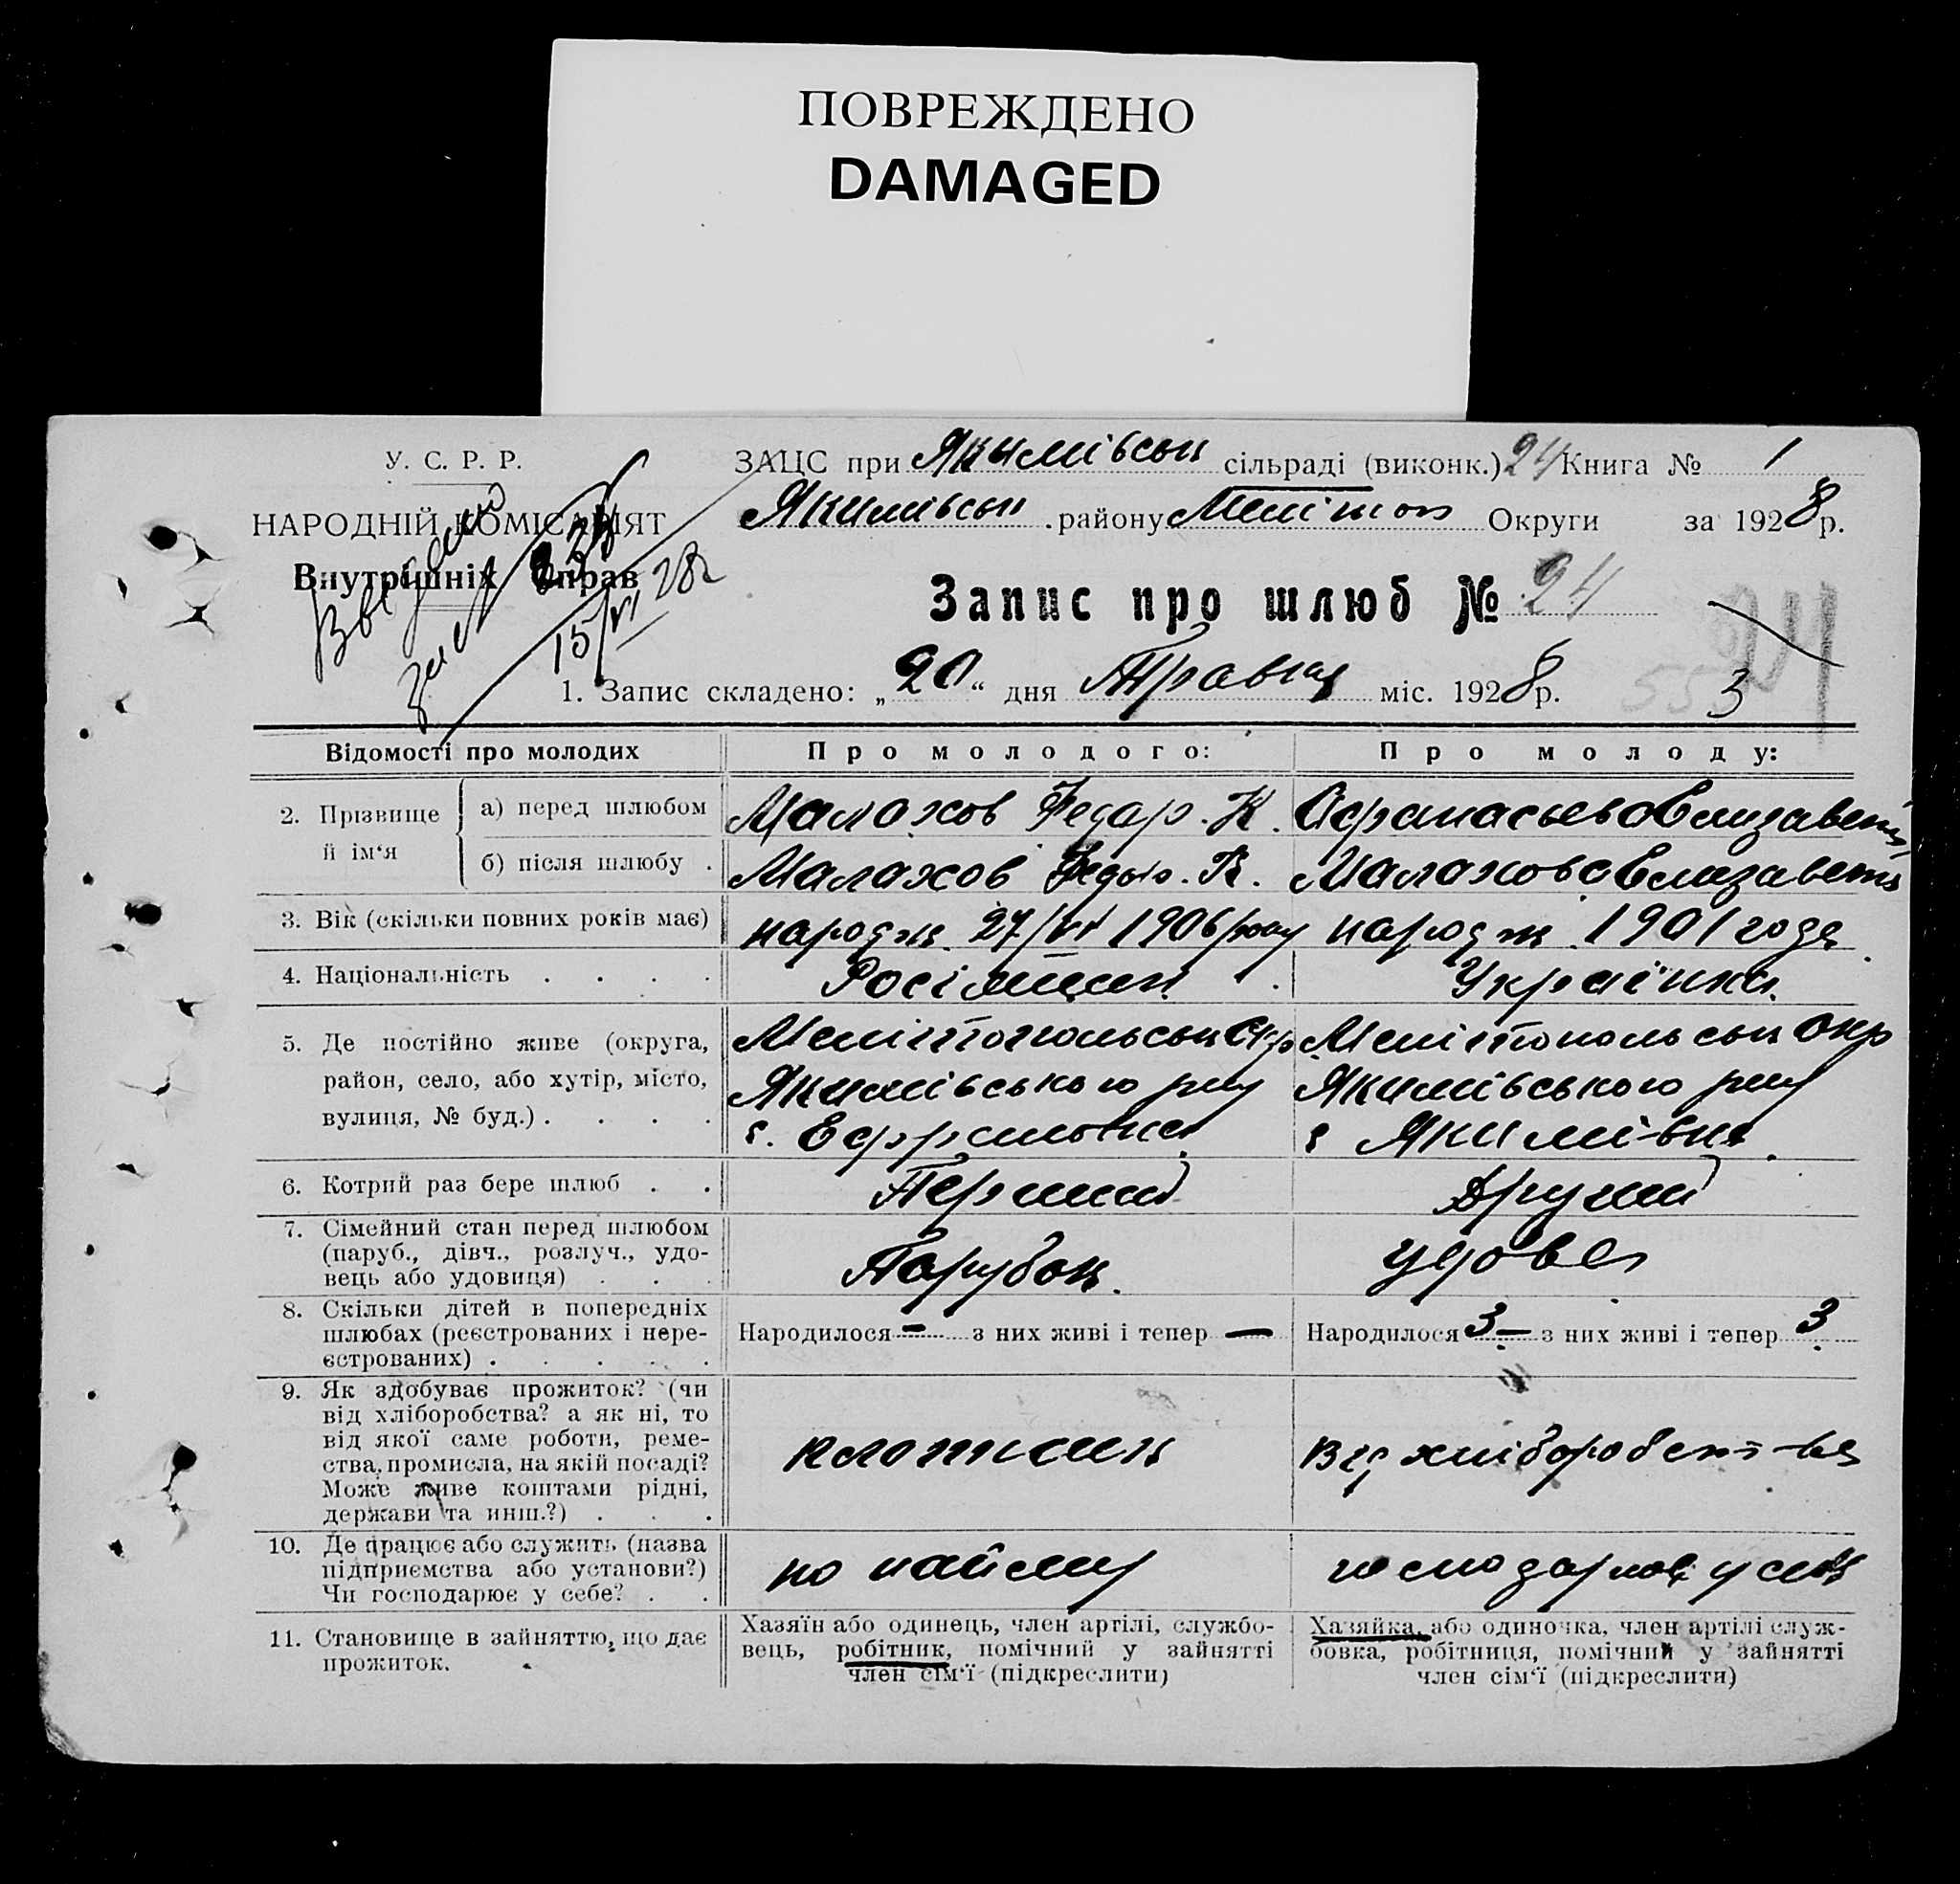 ПОВРЕЖДЕНО
DAMAGED
У. С. Р. Р.
НАРОДНІЙ КОМІСАРІЯТ
Внутрішніх Справ
15/VI 28г
ЗАЦС при Якимівськ сільраді (виконк.) 24 Книга № 1
Якимівськ району Мелітоп Округи за 1928р.
Запис про шлюб № 24
1. Запис складено: „20“ дня Травня міс. 1928р. 3
Відомості про молодих Про молодого: Про молоду:
2. Прізвище й ім‘я
а) перед шлюбом Малахов Федор. К. Афанасьева Елизавета
б) після шлюбу . Малахов Федор. К. Малахова Елизавета
3. Вік (скільки повних років має) народж. 27/VI 1906 року народж. 1901 года
4. Національність . . . . Росіянин. Українка.
5. Де постійно живе (округа, Мелітопольськ Окр Мелітопольськ Окр
район, село, або хутір, місто, Якимівського рну Якимівського рну
вулиця, № буд.) . . . . с. Ефремовка с Якимівка.
6. Котрий раз бере шлюб . . Перший Другий
7. Сімейний стан перед шлюбом
(паруб., дівч., розлуч., удо-
вець або удовиця) . . . Парубок. удова
8. Скільки дітей в попередніх
шлюбах (реєстрованих і нере-
єстрованих) . . . . . Народилося — з них живі і тепер — Народилося 3 — з них живі і тепер 3
9. Як здобуває прожиток? (чи
від хліборобства? а як ні, то
від якої саме роботи, реме-
ства, промисла, на якій посаді?
Може живе коштами рідні,
держави та инш.?) . . . плотник від хліборобства
10. Де працює або служить (назва
підприємства або установи?)
Чи господарює у себе? . . по найму у себе
11. Становище в зайняттю, що дає
прожиток.
Хазяїн або одинець, член артілі, службо-
вець, робітник, помічний у зайнятті
член сім‘ї (підкреслити)
Хазяйка, або одиночка, член артілі служ-
бовка, робітниця, помічний у зайнятті
член сім‘ї (підкреслити)